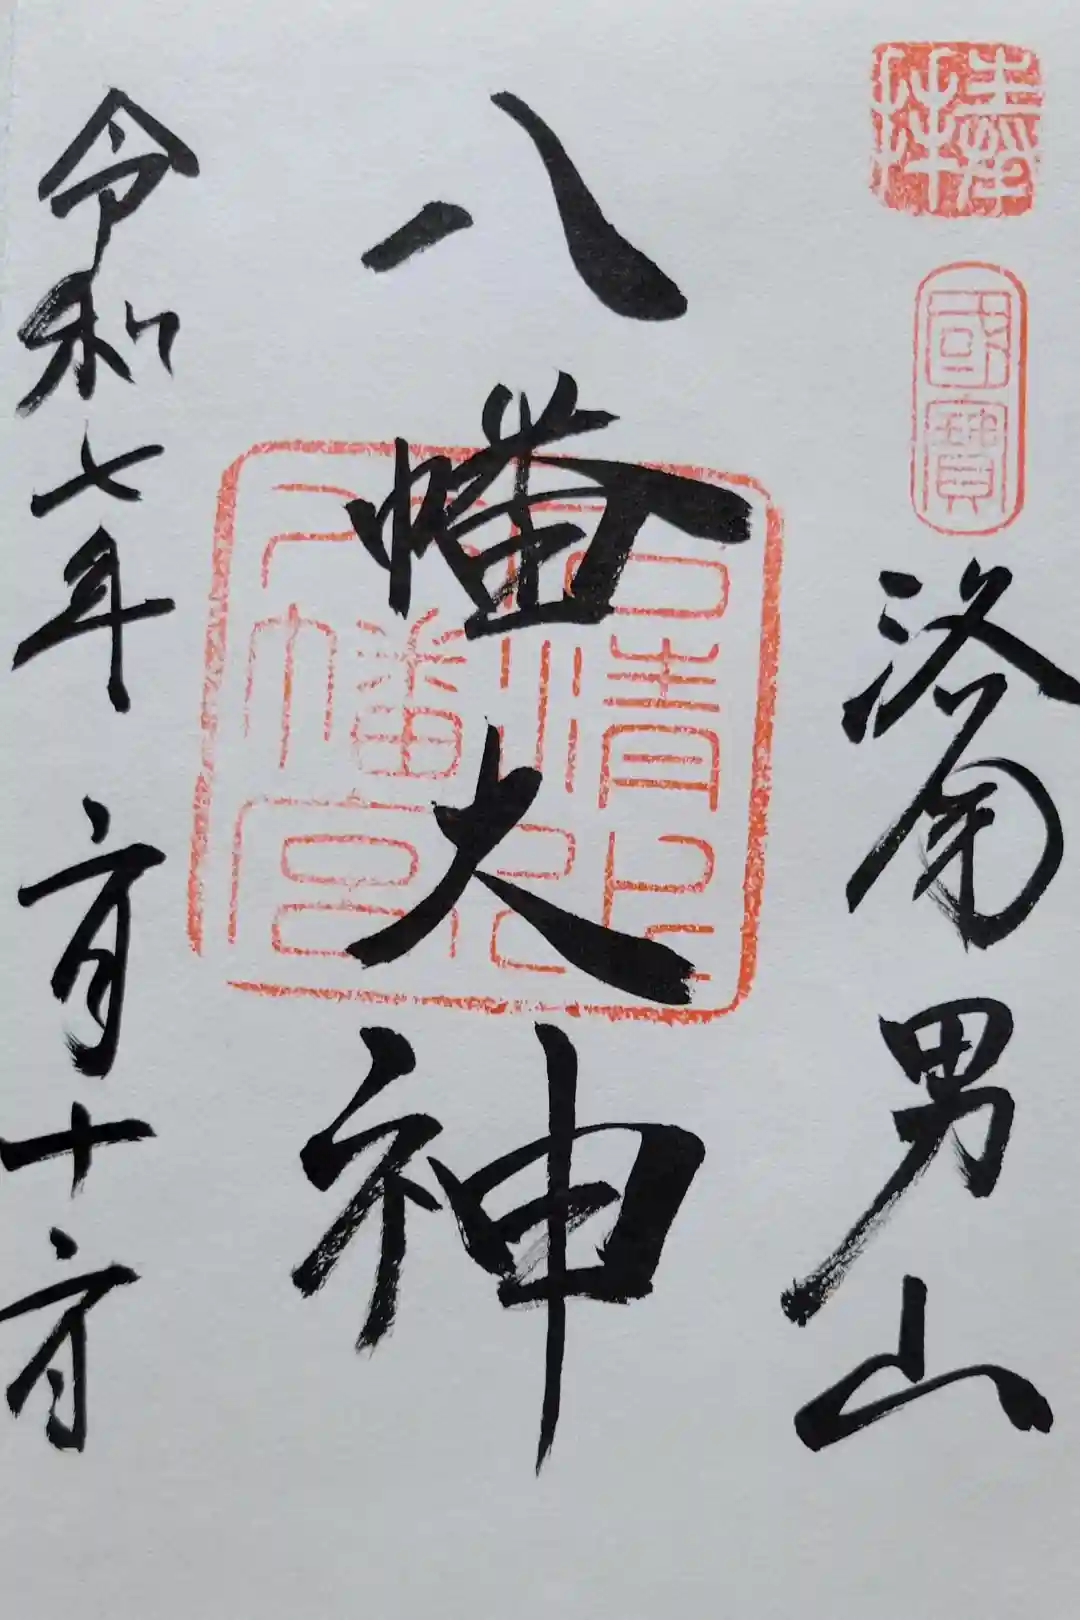 奉拝
國寶
洛南男山
八幡大神
石清水八幡宮
令和七年 月十 日